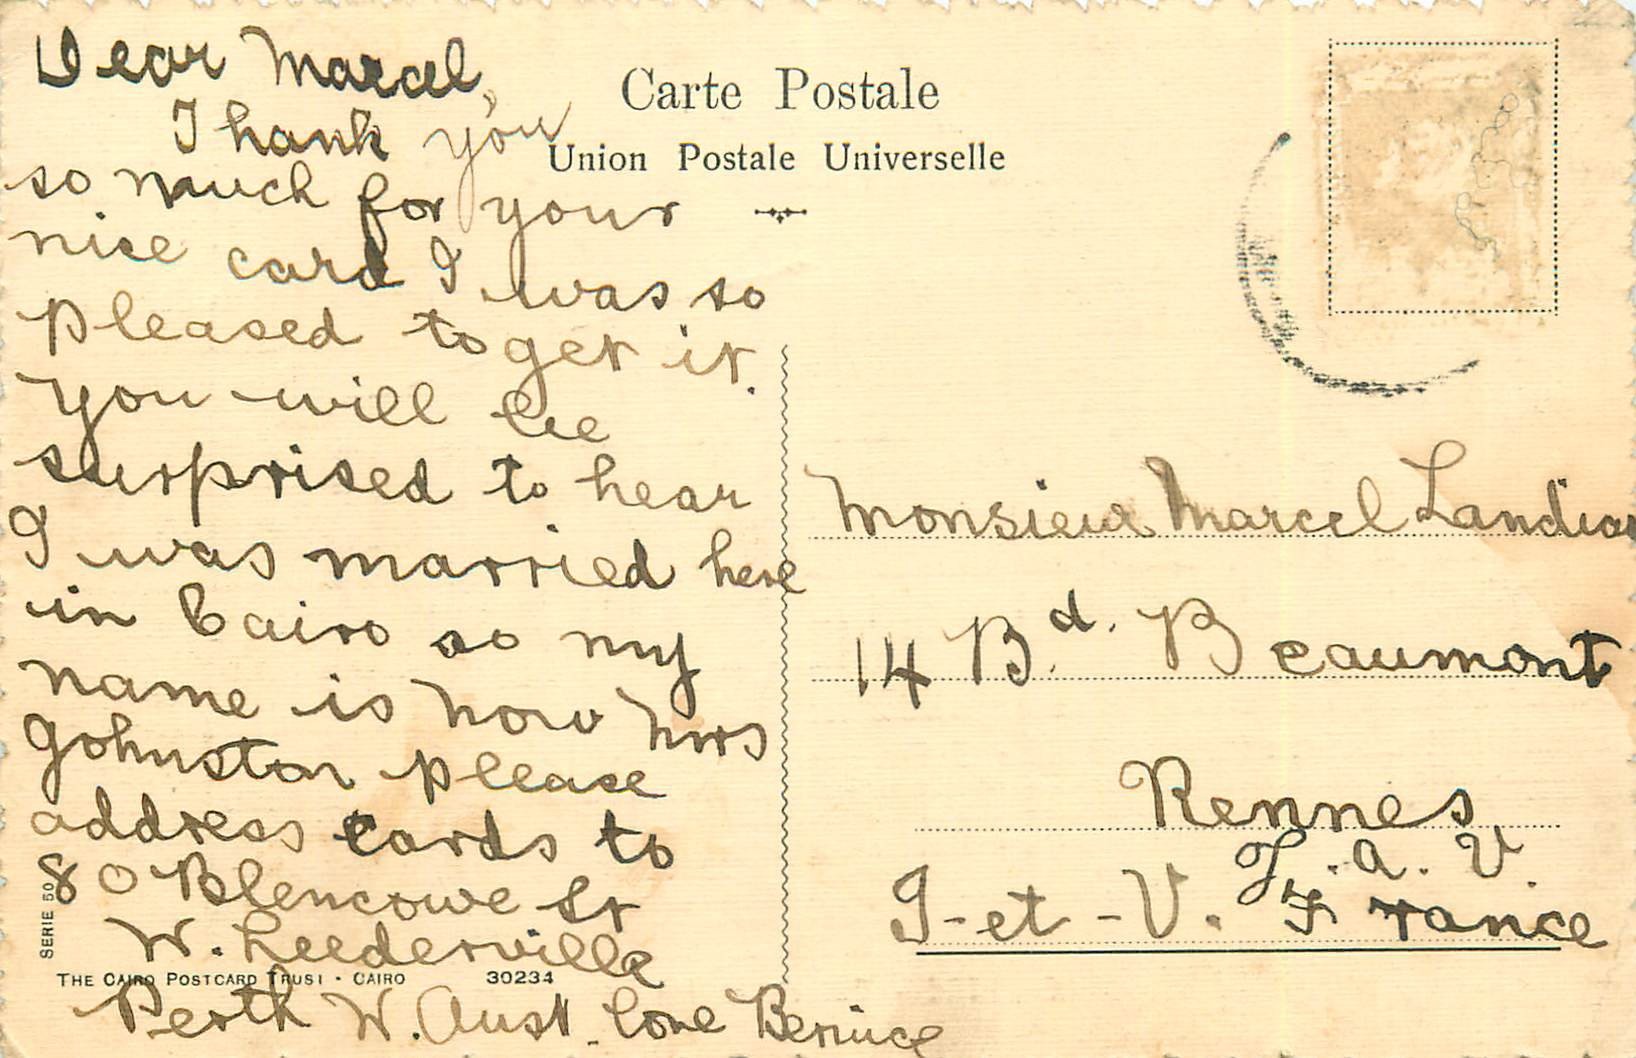 Dear Marcel,
Thank you
so much for your
nice card I was so
pleased to get it.
You will be
surprised to hear
I was married here
in Cairo so my
name is now Mrs
Johnston please
address cards to
80 Blencowe St
W. Leederville
Perth W. Aust. love Bernice
SERIE 50
THE CAIRO POSTCARD TRUST • CAIRO 30234
Carte Postale
Union Postale Universelle
Monsieur Marcel
14 Bd. Beaumont
Rennes
J. A. V.
I-et-V. France